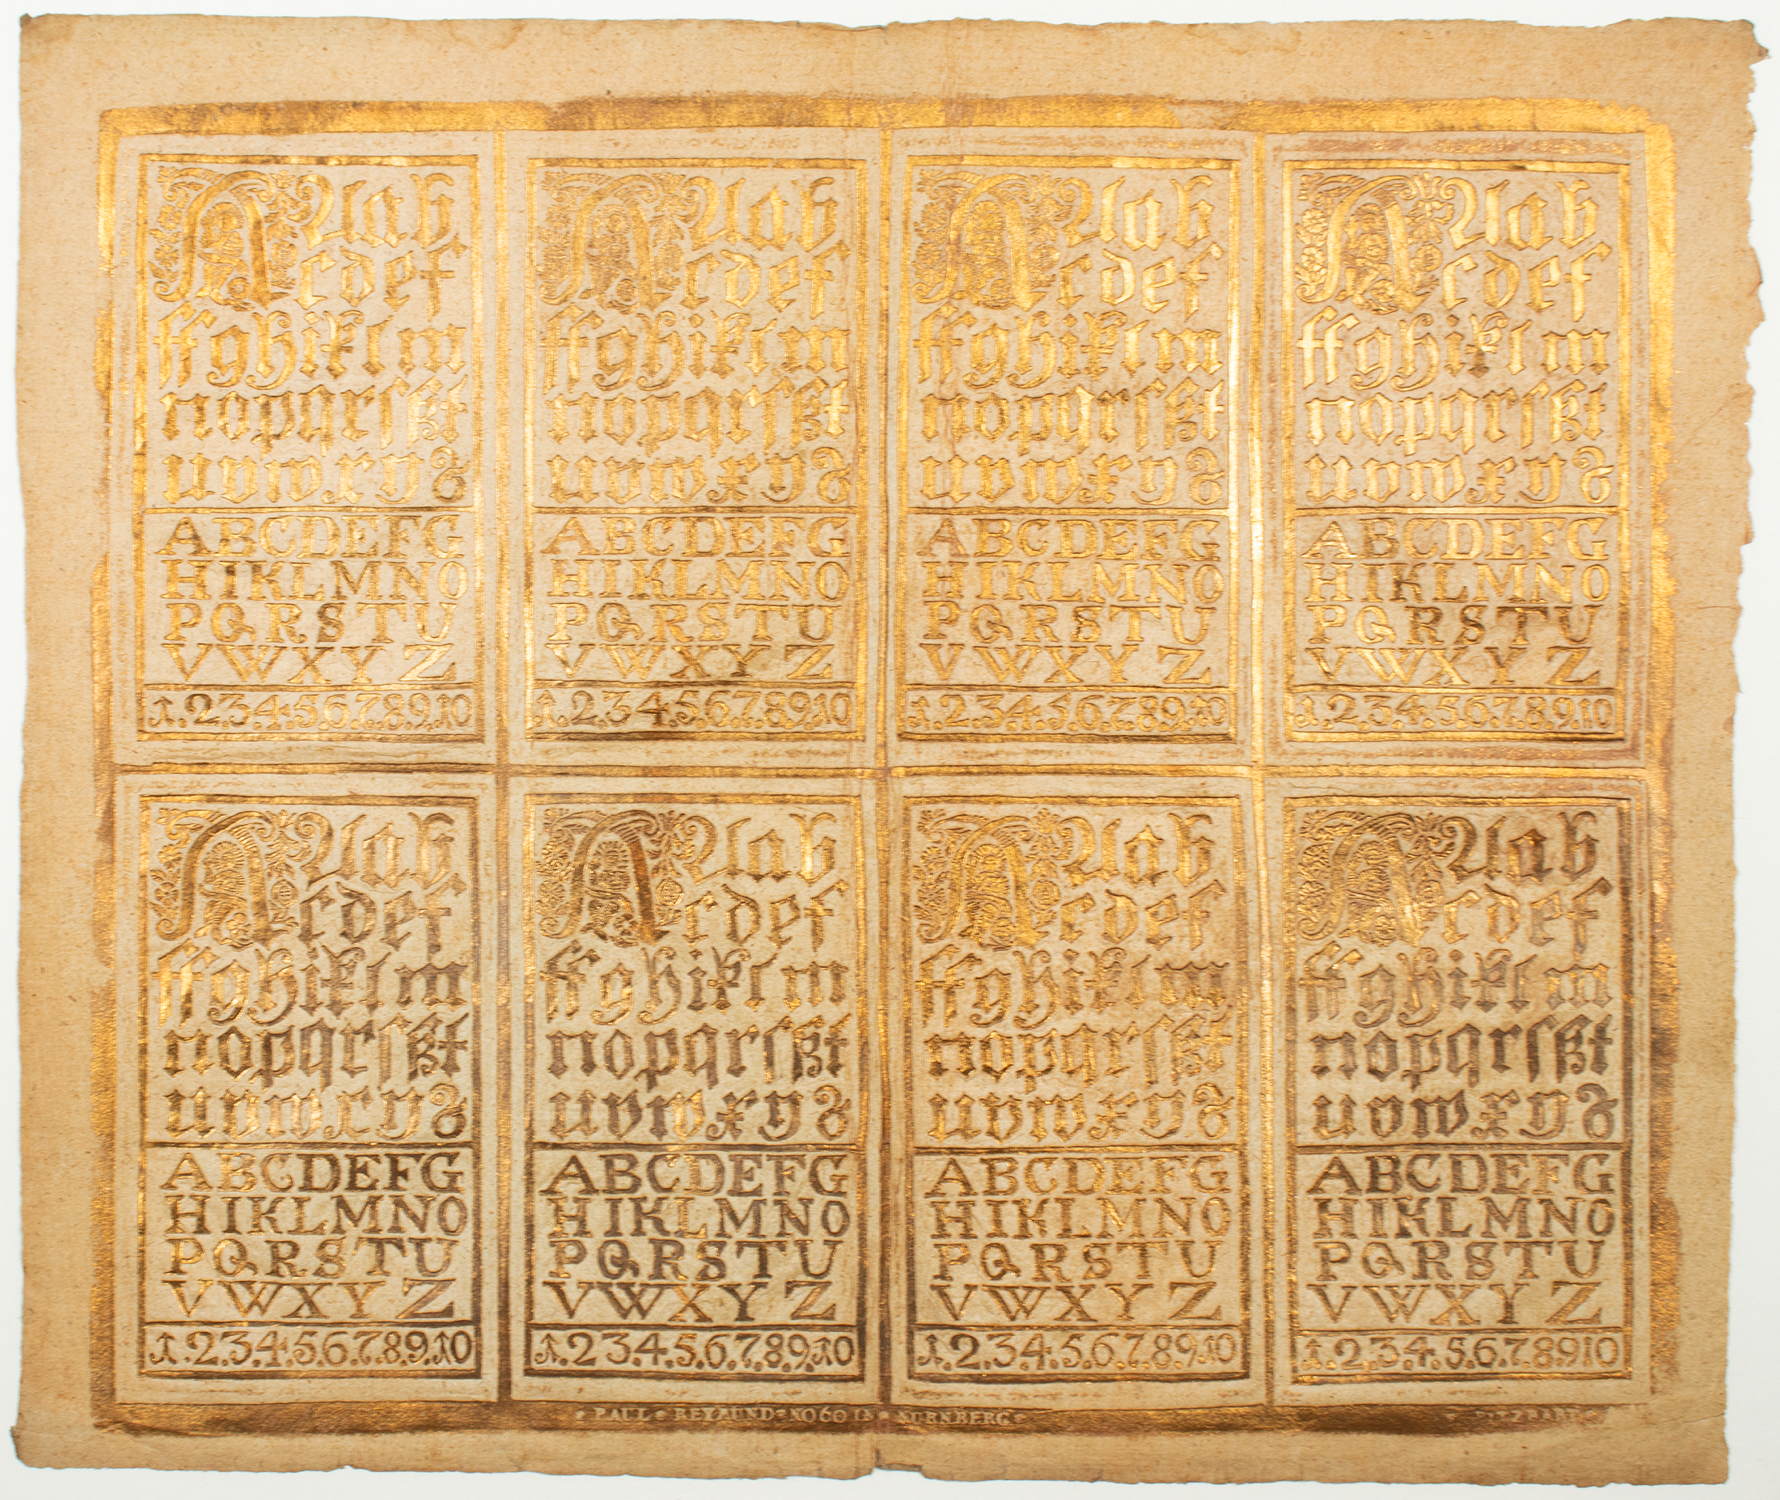 A A a b
c d e f
ff g h i k l m
n o p q r ſ ß t
u v w x y z
A B C D E F G
H I K L M N O
P Q R S T U
V W X Y Z
1.2.3.4.5.6.7.8.9.10
A A a b
c d e f
ff g h i k l m
n o p q r ſ ß t
u v w x y z
A B C D E F G
H I K L M N O
P Q R S T U
V W X Y Z
1.2.3.4.5.6.7.8.9.10
A A a b
c d e f
ff g h i k l m
n o p q r ſ ß t
u v w x y z
A B C D E F G
H I K L M N O
P Q R S T U
V W X Y Z
1.2.3.4.5.6.7.8.9.10
A A a b
c d e f
ff g h i k l m
n o p q r ſ ß t
u v w x y z
A B C D E F G
H I K L M N O
P Q R S T U
V W X Y Z
1.2.3.4.5.6.7.8.9.10
A A a b
c d e f
ff g h i k l m
n o p q r ſ ß t
u v w x y z
A B C D E F G
H I K L M N O
P Q R S T U
V W X Y Z
1.2.3.4.5.6.7.8.9.10
A A a b
c d e f
ff g h i k l m
n o p q r ſ ß t
u v w x y z
A B C D E F G
H I K L M N O
P Q R S T U
V W X Y Z
1.2.3.4.5.6.7.8.9.10
A A a b
c d e f
ff g h i k l m
n o p q r ſ ß t
u v w x y z
A B C D E F G
H I K L M N O
P Q R S T U
V W X Y Z
1.2.3.4.5.6.7.8.9.10
A A a b
c d e f
ff g h i k l m
n o p q r ſ ß t
u v w x y z
A B C D E F G
H I K L M N O
P Q R S T U
V W X Y Z
1.2.3.4.5.6.7.8.9.10
PAUL REYMUND NO 60 IN NURNBERG